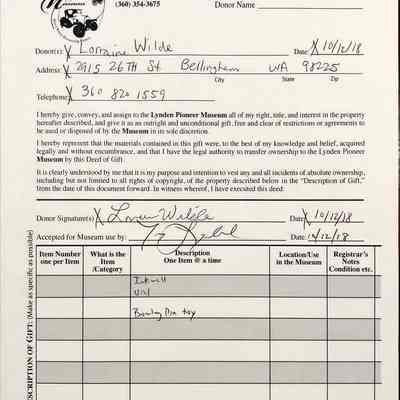 Museum
(360) 354-3675
Donor Name
Donor(s) X Lorraine Wilde Date X 10/12/18
Address: X 2915 26TH St Bellingham WA 98225
City State Zip
Telephone X 360 820 1559
I hereby give, convey, and assign to the Lynden Pioneer Museum all of my right, title, and interest in the property
hereafter described, and give it as an outright and unconditional gift, free and clear of restrictions or agreements to
be used or disposed of by the Museum in its sole discretion.
I hereby represent that the materials contained in this gift were, to the best of my knowledge and belief, acquired
legally and without encumbrance, and that I have the legal authority to transfer ownership to the Lynden Pioneer
Museum by this Deed of Gift.
It is clearly understood by me that it is my purpose and intention to vest any and all incidents of absolute ownership,
including but not limited to all rights of copyright, of the property described below in the "Description of Gift,"
from the date of this document forward. In witness whereof, I have executed this deed:
Donor Signature(s) X Date X 10/12/18
Accepted for Museum use by: Date: 10/12/18
Item Number one per Item
What is the Item /Category
Description One Item @ a time
Location/Use in the Museum
Registrar's Notes Condition etc.
Inkwell
Bowling Pin toy
DESCRIPTION OF GIFT: (Make as specific as possible)